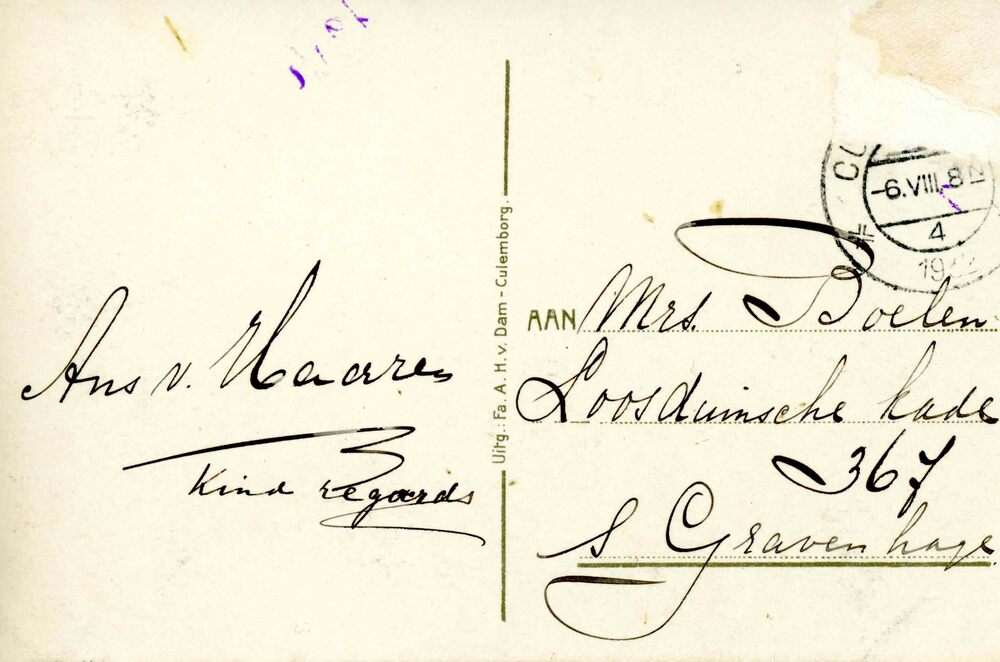 Ans v. Haaren
Kind regards
Uitg.: Fa. A. H. v. Dam - Culemborg.
-6.VIII. 8
4
AAN Mrs. Boelen
Loosduinsche kade
367
s Gravenhage